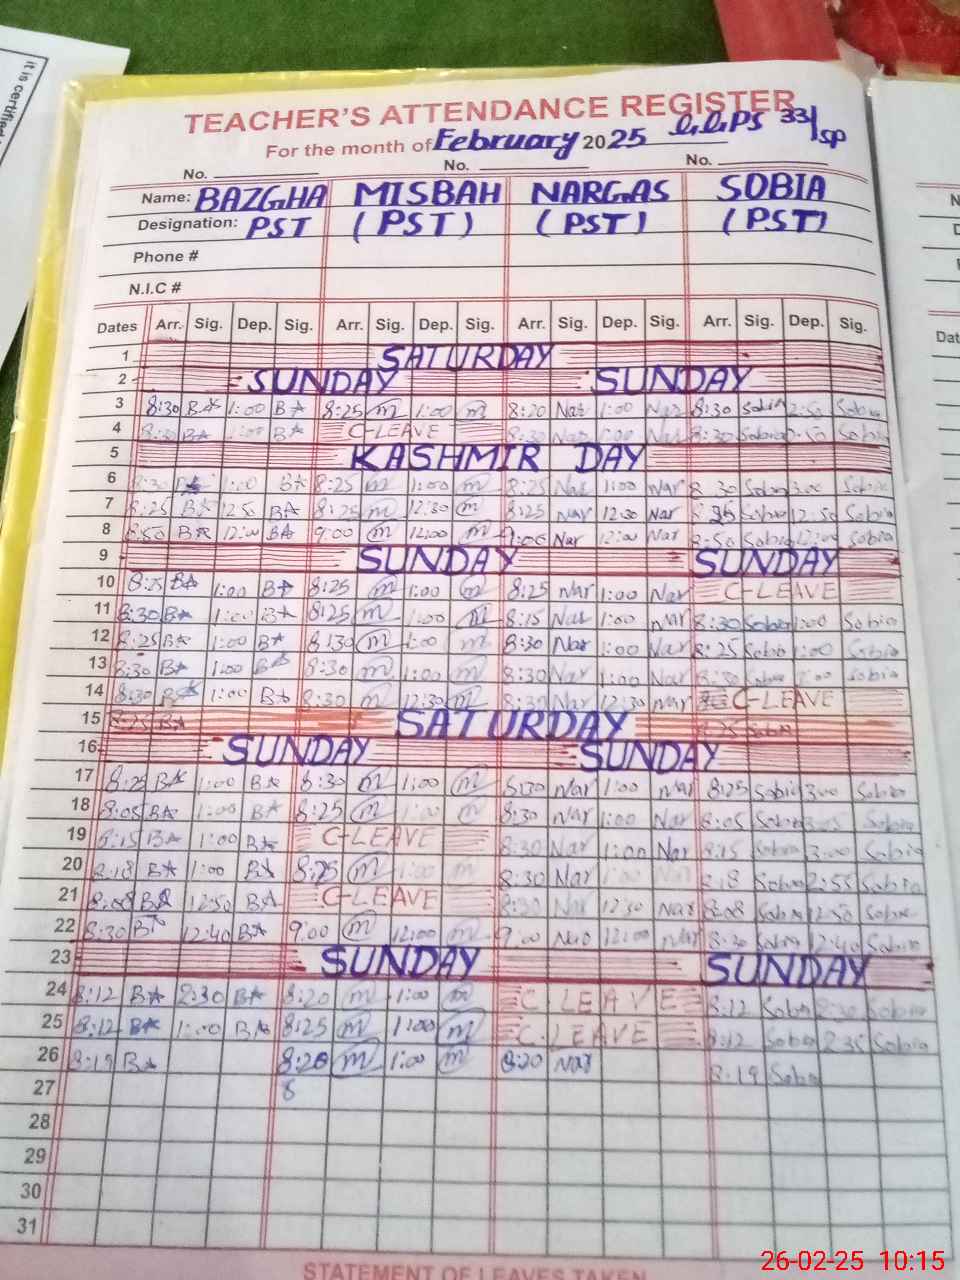 it is certified
TEACHER'S ATTENDANCE REGISTER
For the month of February 2025 G.G.PS 33/SP
No. No. No.
Name: BAZGHA MISBAH NARGAS SOBIA
Designation: PST (PST) (PST) (PST)
Phone #
N.I.C #
Dates Arr. Sig. Dep. Sig. Arr. Sig. Dep. Sig. Arr. Sig. Dep. Sig. Arr. Sig. Dep. Sig.
1 SATURDAY
2 SUNDAY SUNDAY
3 8:30 BA 1:00 BA 8:25 m 1:00 m 8:20 Nar 1:00 Nar 8:30 Sobia 2:50 Sobia
4 8:30 BA 1:00 BA C-LEAVE 8:30 Nar 1:00 Nar 8:30 Sobia 2:50 Sobia
5 KASHMIR DAY
6 8:30 1:00 BA 8:25 m 1:00 m 8:25 Nar 1:00 Nar 8 30 Sobia 3:00 Sobia
7 8:25 BA 12:50 BA 8:25 m 12:30 m 8:25 Nar 12:30 Nar 8 25 Sobia 12:50 Sobia
8 8:50 BA 12:00 BA 9:00 m 12:00 m 9:00 Nar 12:00 Nar 8:50 Sobia 12:00 Sobia
9 SUNDAY SUNDAY
10 8:25 BA 1:00 BA 8:25 m 1:00 m 8:25 Nar 1:00 Nar C-LEAVE
11 8:30 BA 1:00 BA 8:25 m 1:00 m 8:15 Nar 1:00 Nar 8:30 Sobia 1:00 Sobia
12 8:25 BA 1:00 BA 8:30 m 1:00 m 8:30 Nar 1:00 Nar 8:25 Sobia 1:00 Sobia
13 8:30 BA 1:00 BA 8:30 m 1:00 m 8:30 Nar 1:00 Nar 8:30 Sobia 1:00 Sobia
14 8:30 BA 1:00 BA 8:30 m 12:30 m 8:30 Nar 12:30 Nar C-LEAVE
15 8:25 BA SATURDAY 8:25 Sobia
16 SUNDAY SUNDAY
17 8:25 BA 1:00 BA 8:30 m 1:00 m 8:30 Nar 1:00 Nar 8:25 Sobia 3:00 Sobia
18 8:05 BA 1:00 BA 8:25 m 1:00 m 8:30 Nar 1:00 Nar 8:05 Sobia Sobia
19 8:15 BA 1:00 BA C-LEAVE 8:30 Nar 1:00 Nar 8:15 Sobia 3:00 Sobia
20 8:18 BA 1:00 BA 8:25 m 1:00 m 8:30 Nar 1:00 Nar 8:18 Sobia 2:55 Sobia
21 8:08 BA 12:50 BA C-LEAVE 8:30 Nar 12:30 Nar 8:08 Sobia 12:50 Sobia
22 8:30 BA 12:40 BA 9:00 m 12:00 m 9:00 Nar 12:00 Nar 8:30 Sobia 12:40 Sobia
23 SUNDAY SUNDAY
24 8:12 BA 2:30 BA 8:20 m 1:00 m C LEAVE 8:12 Sobia 2:30 Sobia
25 8:12 BA 1:00 BA 8:25 m 1:00 m C-LEAVE 8:12 Sobia 2:35 Sobia
26 8:19 BA 8:20 m 1:00 m 8:20 Nar 8:19 Sobia
27 8
28
29
30
31
STATEMENT OF LEAVES TAKEN
26-02-25 10:15